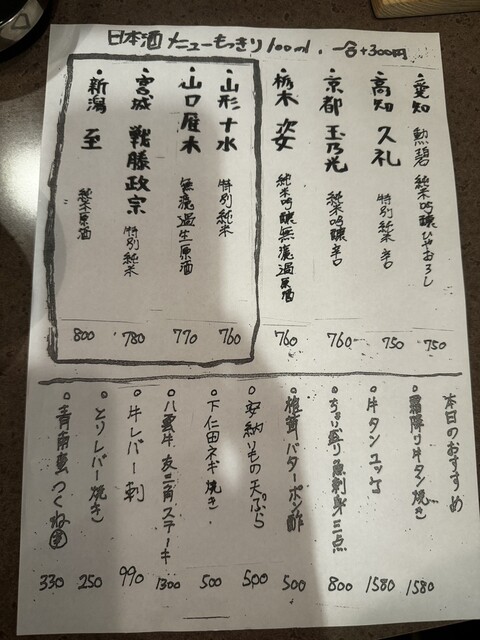 日本酒メニューもっきり100ml、一合+300円
・愛知 勲碧 純米吟醸ひやおろし 750
・高知 久礼 特別純米 辛口 750
・京都 玉乃光 純米吟醸 辛口 760
・栃木 姿 純米吟醸無濾過原酒 760
・山形 十水 特別純米 760
・山口 雁木 無濾過生原酒 770
・宮城 戦勝政宗 特別純米 780
・新潟 至 純米原酒 800
本日のおすすめ
・霜降り牛タン焼き 1580
・牛タンユッケ 1580
・ちょい盛り魚刺身三点 800
・椎茸バターポン酢 500
・安納いもの天ぷら 500
・下仁田ネギ焼き 500
・八雲牛友三角ステーキ 1300
・牛レバー刺 990
・とりレバー焼き 250
・青南蛮つくね 330